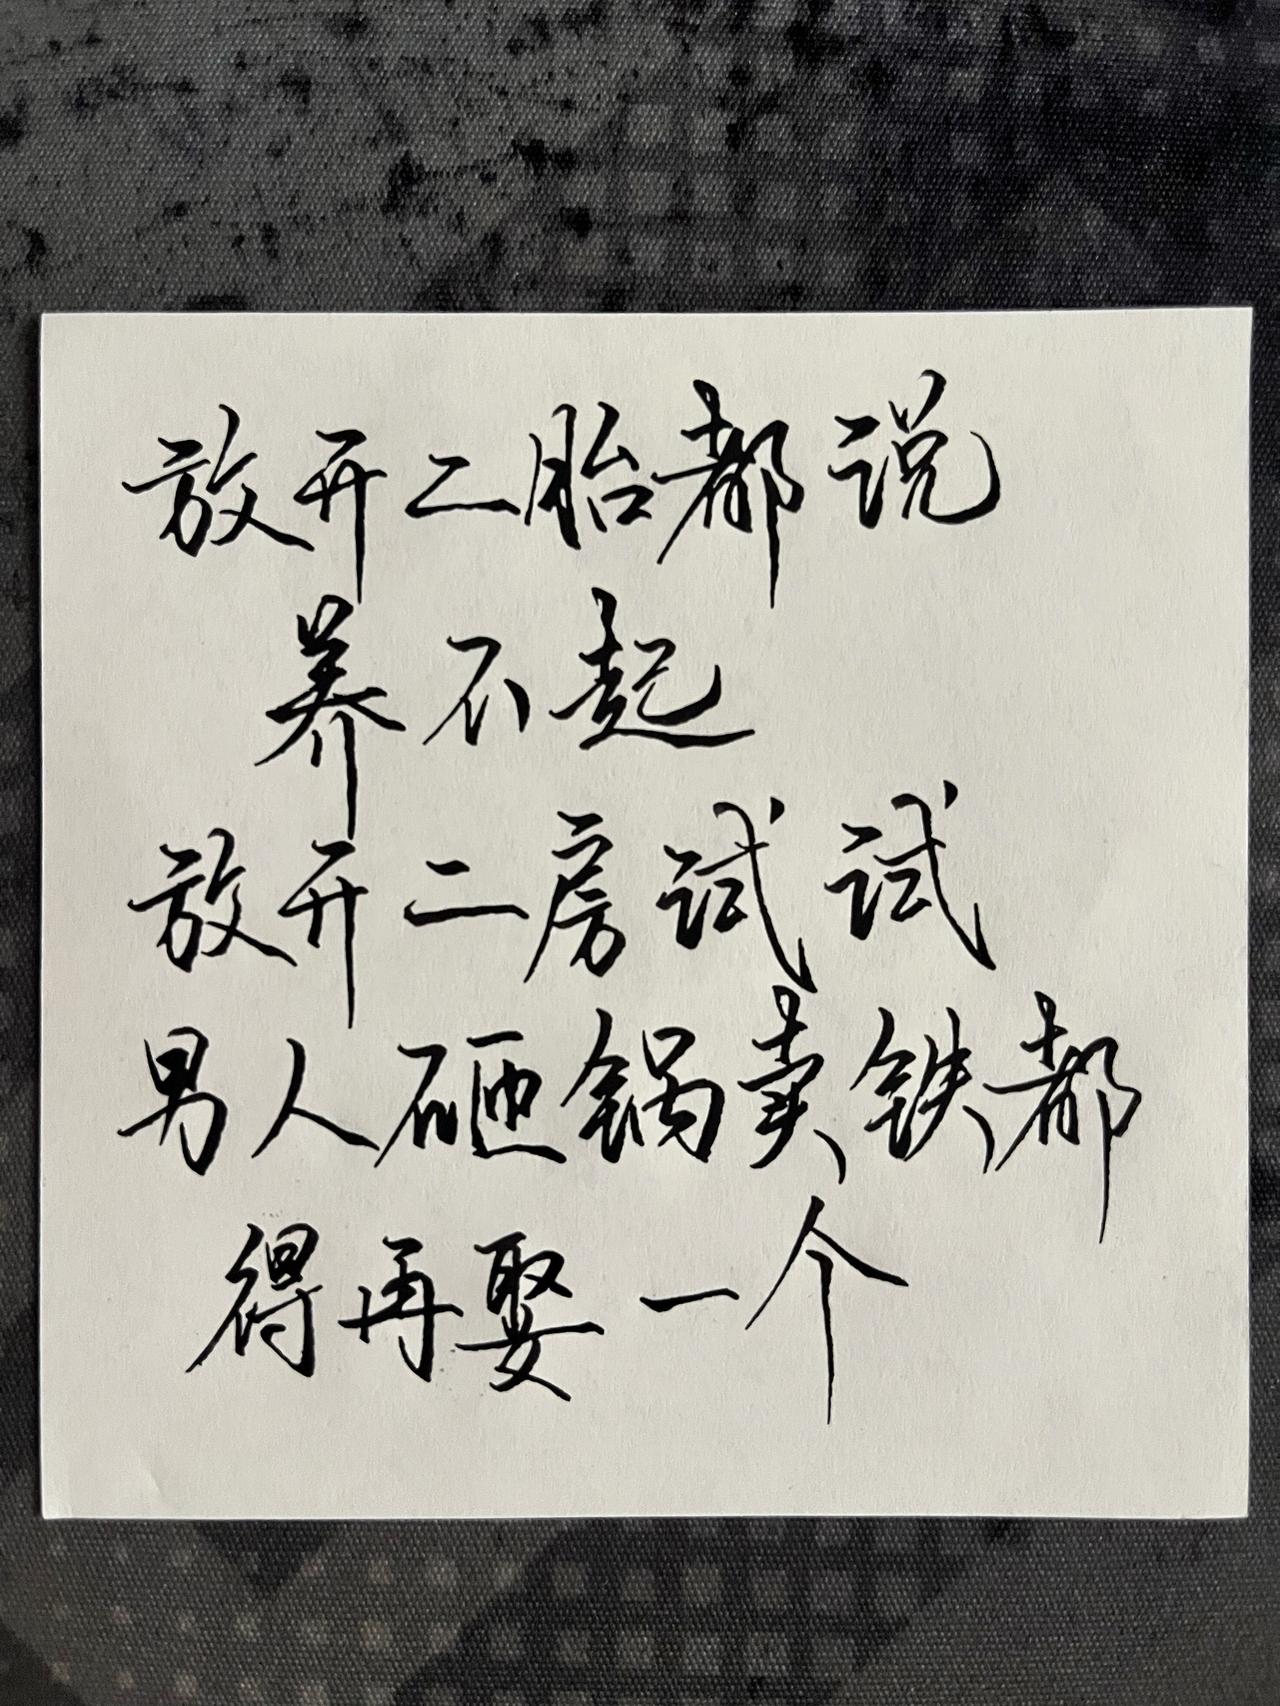 放开二胎都说
养不起
放开二房试试
男人砸锅卖铁都
得再娶一个